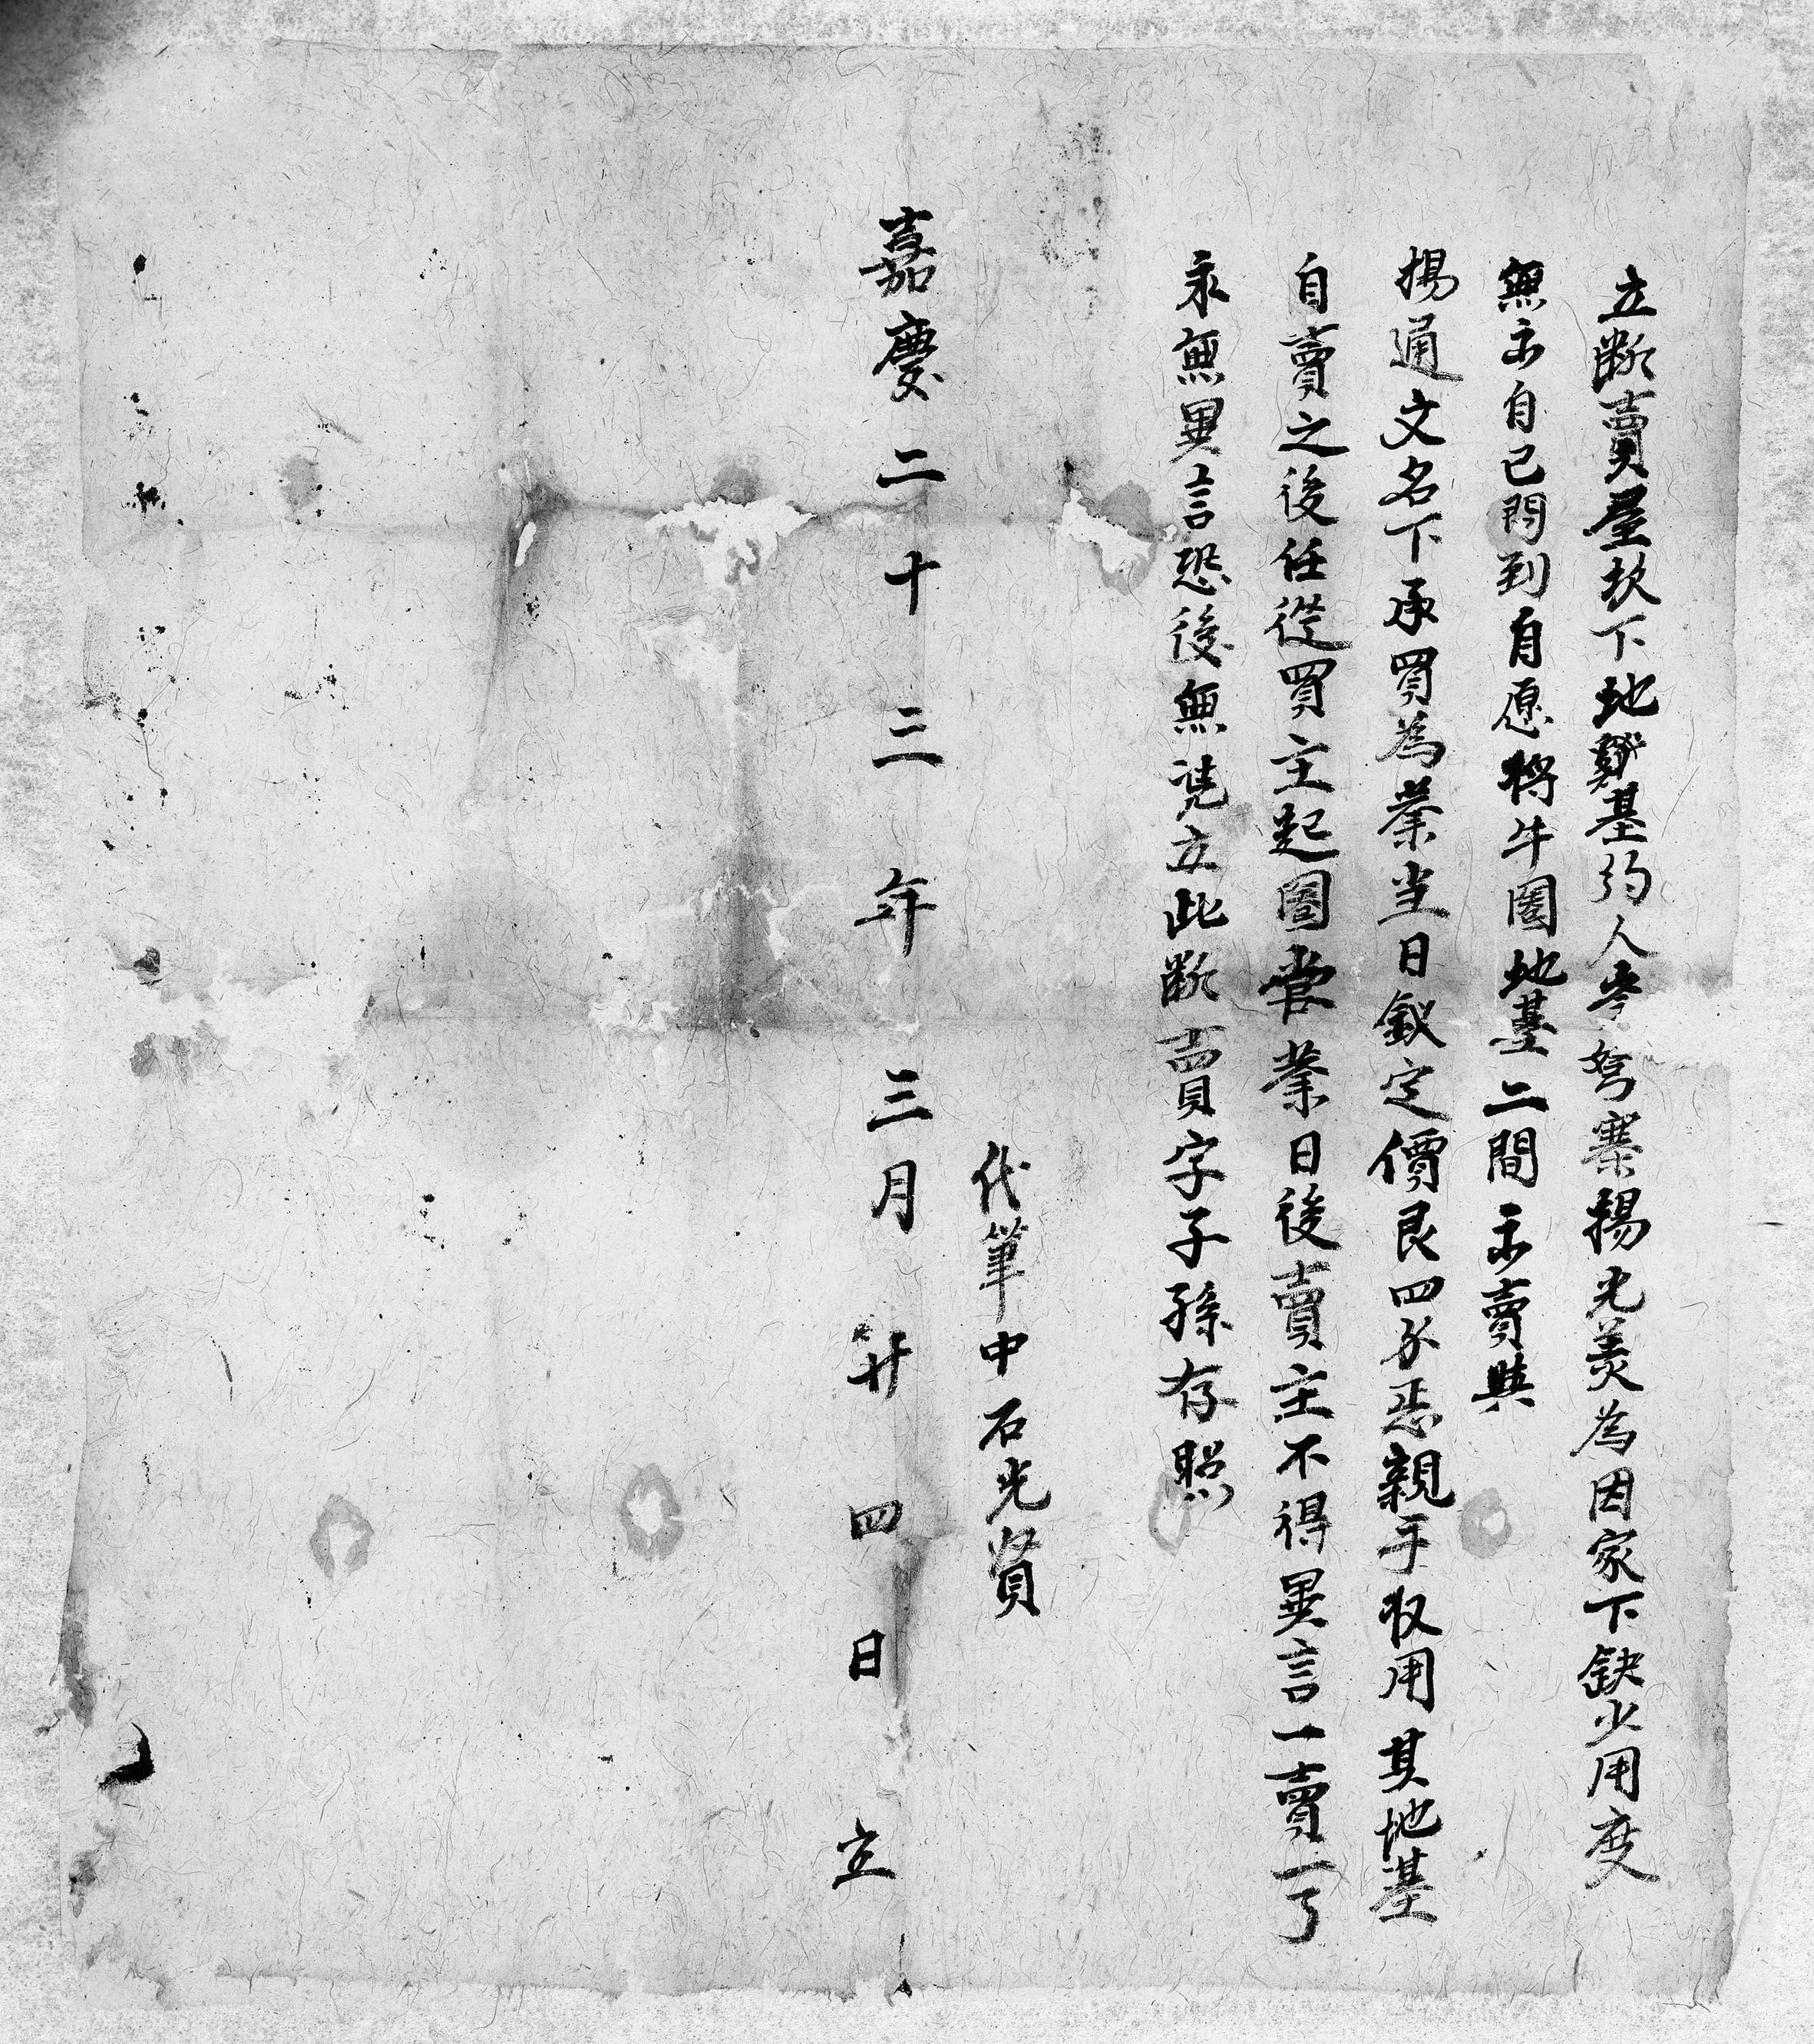 立断賣屋坎下地基約人岑努寨楊光美為因家下缺少用度
無示自已問到自愿將牛圈地基二間示賣與
楊通文名下承買為業當日議定價艮四分恁親手收用其地基
自賣之後任從買主起圈管業日後賣主不得異言一賣一了
永無異言恐後無憑立此断賣字子孫存照
代筆中石光賢
嘉慶二十三年三月廿四日立